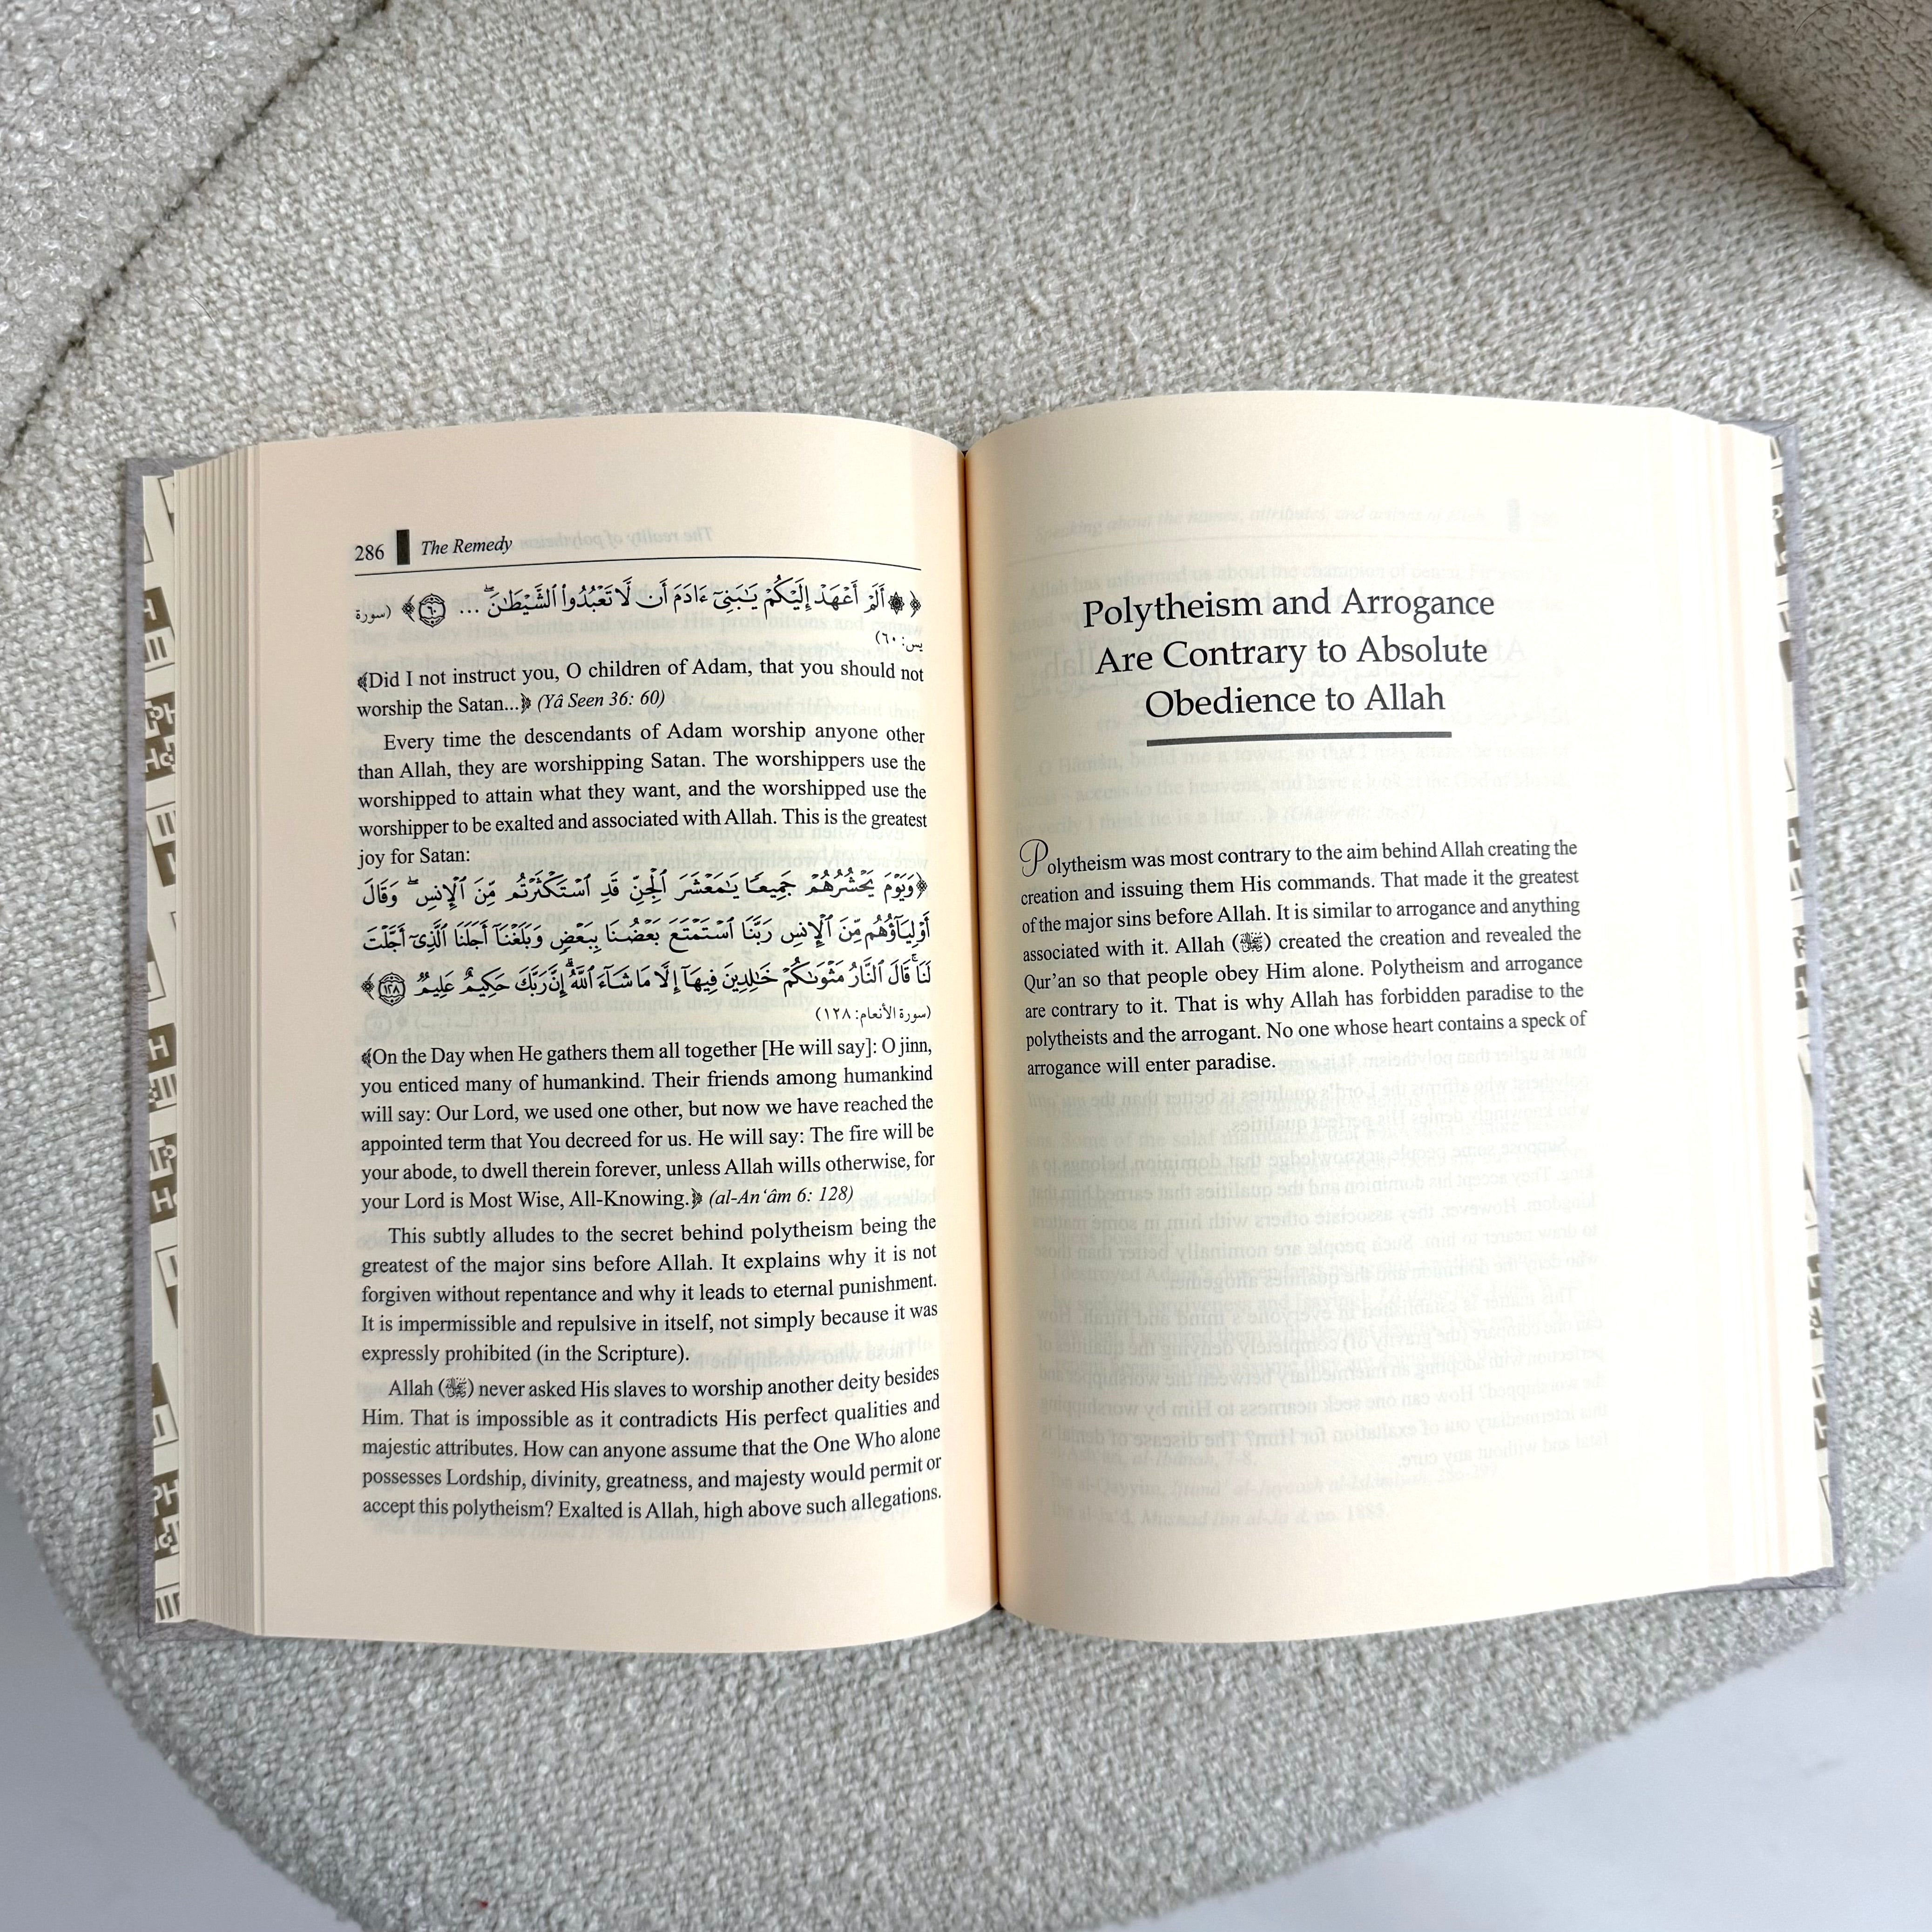 286 The Remedy
﴿ ۞ أَلَمْ أَعْهَدْ إِلَيْكُمْ يَـٰبَنِىٓ ءَادَمَ أَن لَّا تَعْبُدُوا۟ ٱلشَّيْطَـٰنَ ۖ ... ٦٠ ﴾ (سورة
يس: ٦٠)
﴾Did I not instruct you, O children of Adam, that you should not
worship the Satan...﴿ (Yâ Seen 36: 60)
Every time the descendants of Adam worship anyone other
than Allah, they are worshipping Satan. The worshippers use the
worshipped to attain what they want, and the worshipped use the
worshipper to be exalted and associated with Allah. This is the greatest
joy for Satan:
﴿ وَيَوْمَ يَحْشُرُهُمْ جَمِيعًا يَـٰمَعْشَرَ ٱلْجِنِّ قَدِ ٱسْتَكْثَرْتُم مِّنَ ٱلْإِنسِ ۖ وَقَالَ
أَوْلِيَآؤُهُم مِّنَ ٱلْإِنسِ رَبَّنَا ٱسْتَمْتَعَ بَعْضُنَا بِبَعْضٍ وَبَلَغْنَآ أَجَلَنَا ٱلَّذِىٓ أَجَّلْتَ
لَنَا ۚ قَالَ ٱلنَّارُ مَثْوَىٰكُمْ خَـٰلِدِينَ فِيهَآ إِلَّا مَا شَآءَ ٱللَّهُ ۗ إِنَّ رَبَّكَ حَكِيمٌ عَلِيمٌ ١٢٨ ﴾
(سورة الأنعام: ١٢٨)
﴾On the Day when He gathers them all together [He will say]: O jinn,
you enticed many of humankind. Their friends among humankind
will say: Our Lord, we used one other, but now we have reached the
appointed term that You decreed for us. He will say: The fire will be
your abode, to dwell therein forever, unless Allah wills otherwise, for
your Lord is Most Wise, All-Knowing.﴿ (al-An‘âm 6: 128)
This subtly alludes to the secret behind polytheism being the
greatest of the major sins before Allah. It explains why it is not
forgiven without repentance and why it leads to eternal punishment.
It is impermissible and repulsive in itself, not simply because it was
expressly prohibited (in the Scripture).
Allah (ﷻ) never asked His slaves to worship another deity besides
Him. That is impossible as it contradicts His perfect qualities and
majestic attributes. How can anyone assume that the One Who alone
possesses Lordship, divinity, greatness, and majesty would permit or
accept this polytheism? Exalted is Allah, high above such allegations.
Polytheism and Arrogance
Are Contrary to Absolute
Obedience to Allah
Polytheism was most contrary to the aim behind Allah creating the
creation and issuing them His commands. That made it the greatest
of the major sins before Allah. It is similar to arrogance and anything
associated with it. Allah (ﷻ) created the creation and revealed the
Qur’an so that people obey Him alone. Polytheism and arrogance
are contrary to it. That is why Allah has forbidden paradise to the
polytheists and the arrogant. No one whose heart contains a speck of
arrogance will enter paradise.